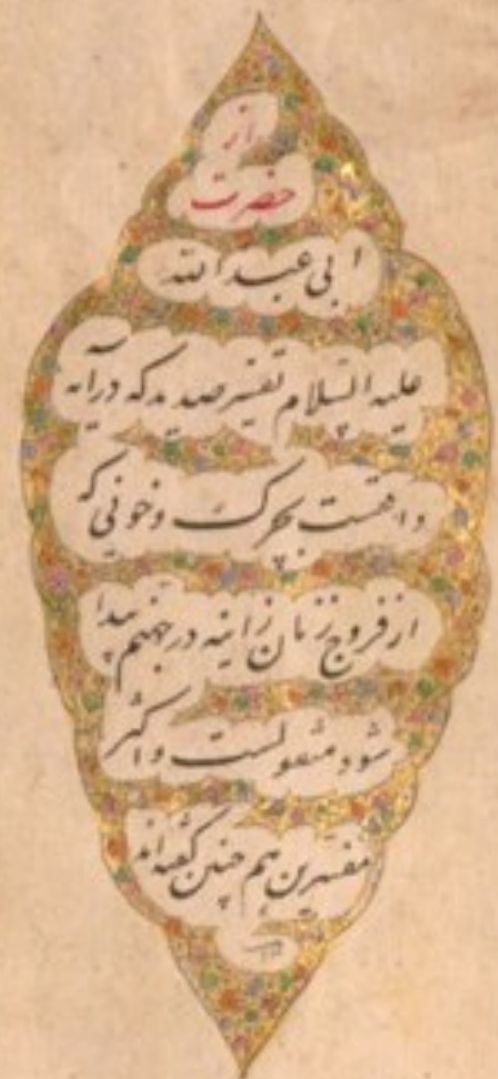 از
حضرت
ابی عبد الله
علیه السلام تفسیر صدید که در آیه
واقعست بچرک و خونی که
از فروج زنان زانیه در جهنم پیدا
شود منقولست و اکثر
مفسرین هم چنین گفته‌اند